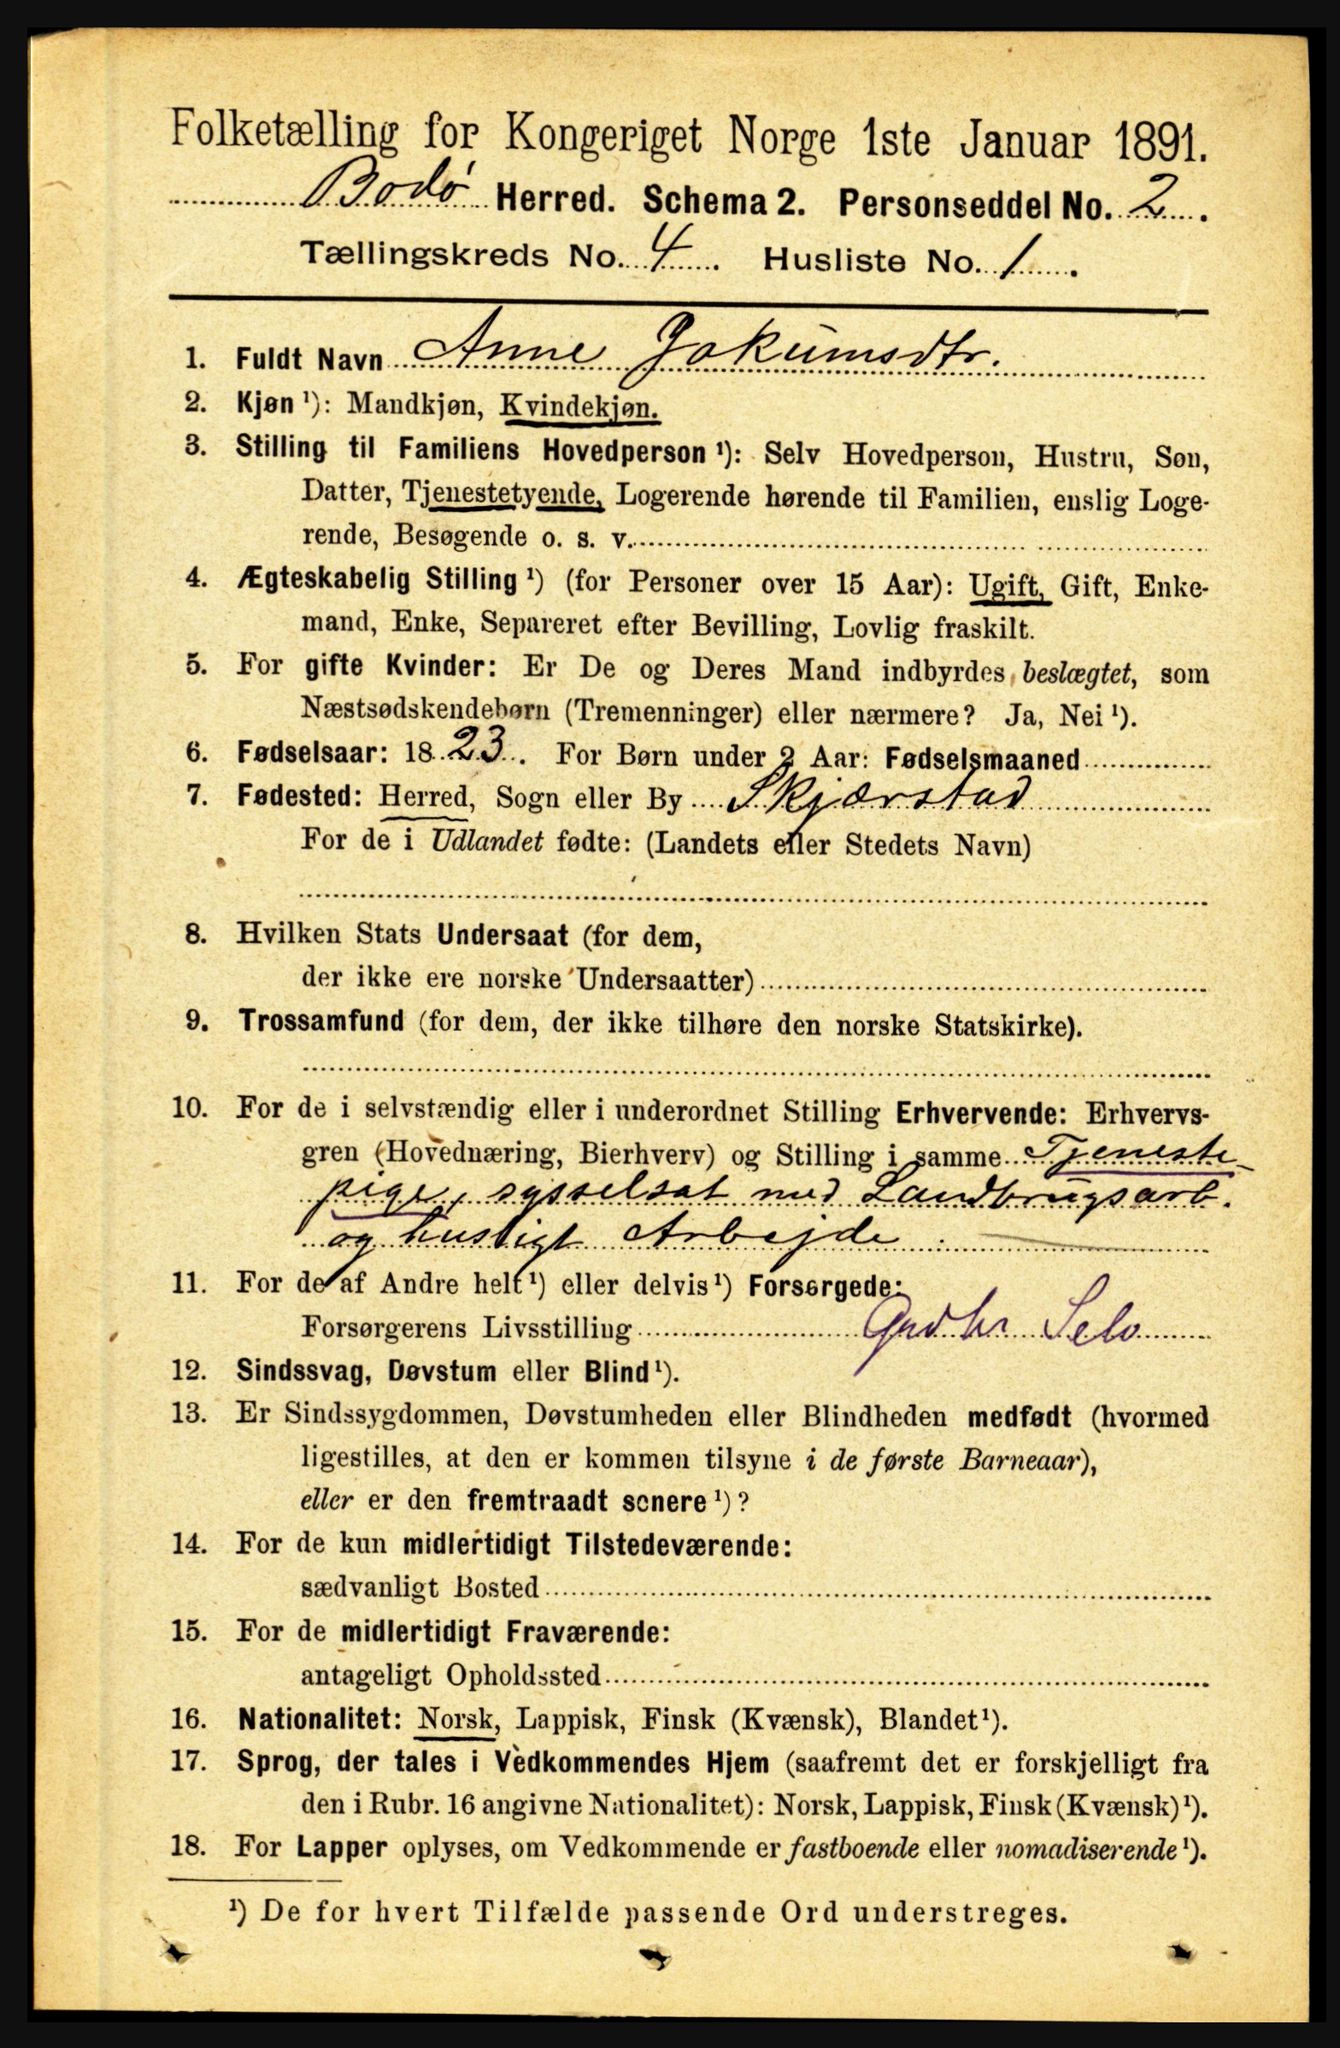 Folketælling for Kongeriget Norge 1ste Januar 1891.
Bodø Herred. Schema 2. Personseddel No. 2.
Tællingskreds No. 4. Husliste No. 1.
1. Fuldt Navn Anne Jokumsdtr.
2. Kjøn ¹): Mandkjøn, Kvindekjøn.
3. Stilling til Familiens Hovedperson ¹): Selv Hovedperson, Hustru, Søn,
Datter, Tjenestetyende, Logerende hørende til Familien, enslig Loge-
rende, Besøgende o. s. v.
4. Ægteskabelig Stilling ¹) (for Personer over 15 Aar): Ugift, Gift, Enke-
mand, Enke, Separeret efter Bevilling, Lovlig fraskilt.
5. For gifte Kvinder: Er De og Deres Mand indbyrdes beslægtet, som
Næstsødskendebørn (Tremenninger) eller nærmere? Ja, Nei ¹).
6. Fødselsaar: 1823. For Børn under 2 Aar: Fødselsmaaned
7. Fødested: Herred, Sogn eller By Skjærstad
For de i Udlandet fødte: (Landets eller Stedets Navn)
8. Hvilken Stats Undersaat (for dem,
der ikke ere norske Undersaatter)
9. Trossamfund (for dem, der ikke tilhøre den norske Statskirke).
10. For de i selvstændig eller i underordnet Stilling Erhvervende: Erhvervs-
gren (Hovednæring, Bierhverv) og Stilling i samme Tjeneste-
pige, sysselsat med Landbrugsarb.
og husligt Arbejde.
11. For de af Andre helt ¹) eller delvis ¹) Forsørgede:
Forsørgerens Livsstilling Gdbr Selv
12. Sindssvag, Døvstum eller Blind ¹).
13. Er Sindssygdommen, Døvstumheden eller Blindheden medfødt (hvormed
ligestilles, at den er kommen tilsyne i de første Barneaar),
eller er den fremtraadt senere ¹)?
14. For de kun midlertidigt Tilstedeværende:
sædvanligt Bosted
15. For de midlertidigt Fraværende:
antageligt Opholdssted
16. Nationalitet: Norsk, Lappisk, Finsk (Kvænsk), Blandet ¹).
17. Sprog, der tales i Vedkommendes Hjem (saafremt det er forskjelligt fra
den i Rubr. 16 angivne Nationalitet): Norsk, Lappisk, Finsk (Kvænsk) ¹).
18. For Lapper oplyses, om Vedkommende er fastboende eller nomadiserende ¹).
¹) De for hvert Tilfælde passende Ord understreges.